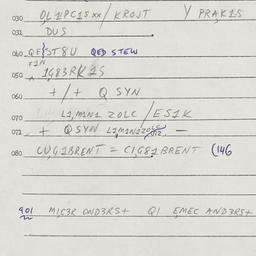 030 OL1PC1Sxx / KROJT Y PRAK1S
031 DUS
040 QEST8U QED STEW
F1N
050 1G83RK1S
060 + / + Q SYN
070 L1,M1N1 ZOLC / ES1K
071 + Q SYN L1,M1N1 –
080 = C1G81BRENT (146
901 M1C3R OND3RS+ Q1 EMEC AND3RS+